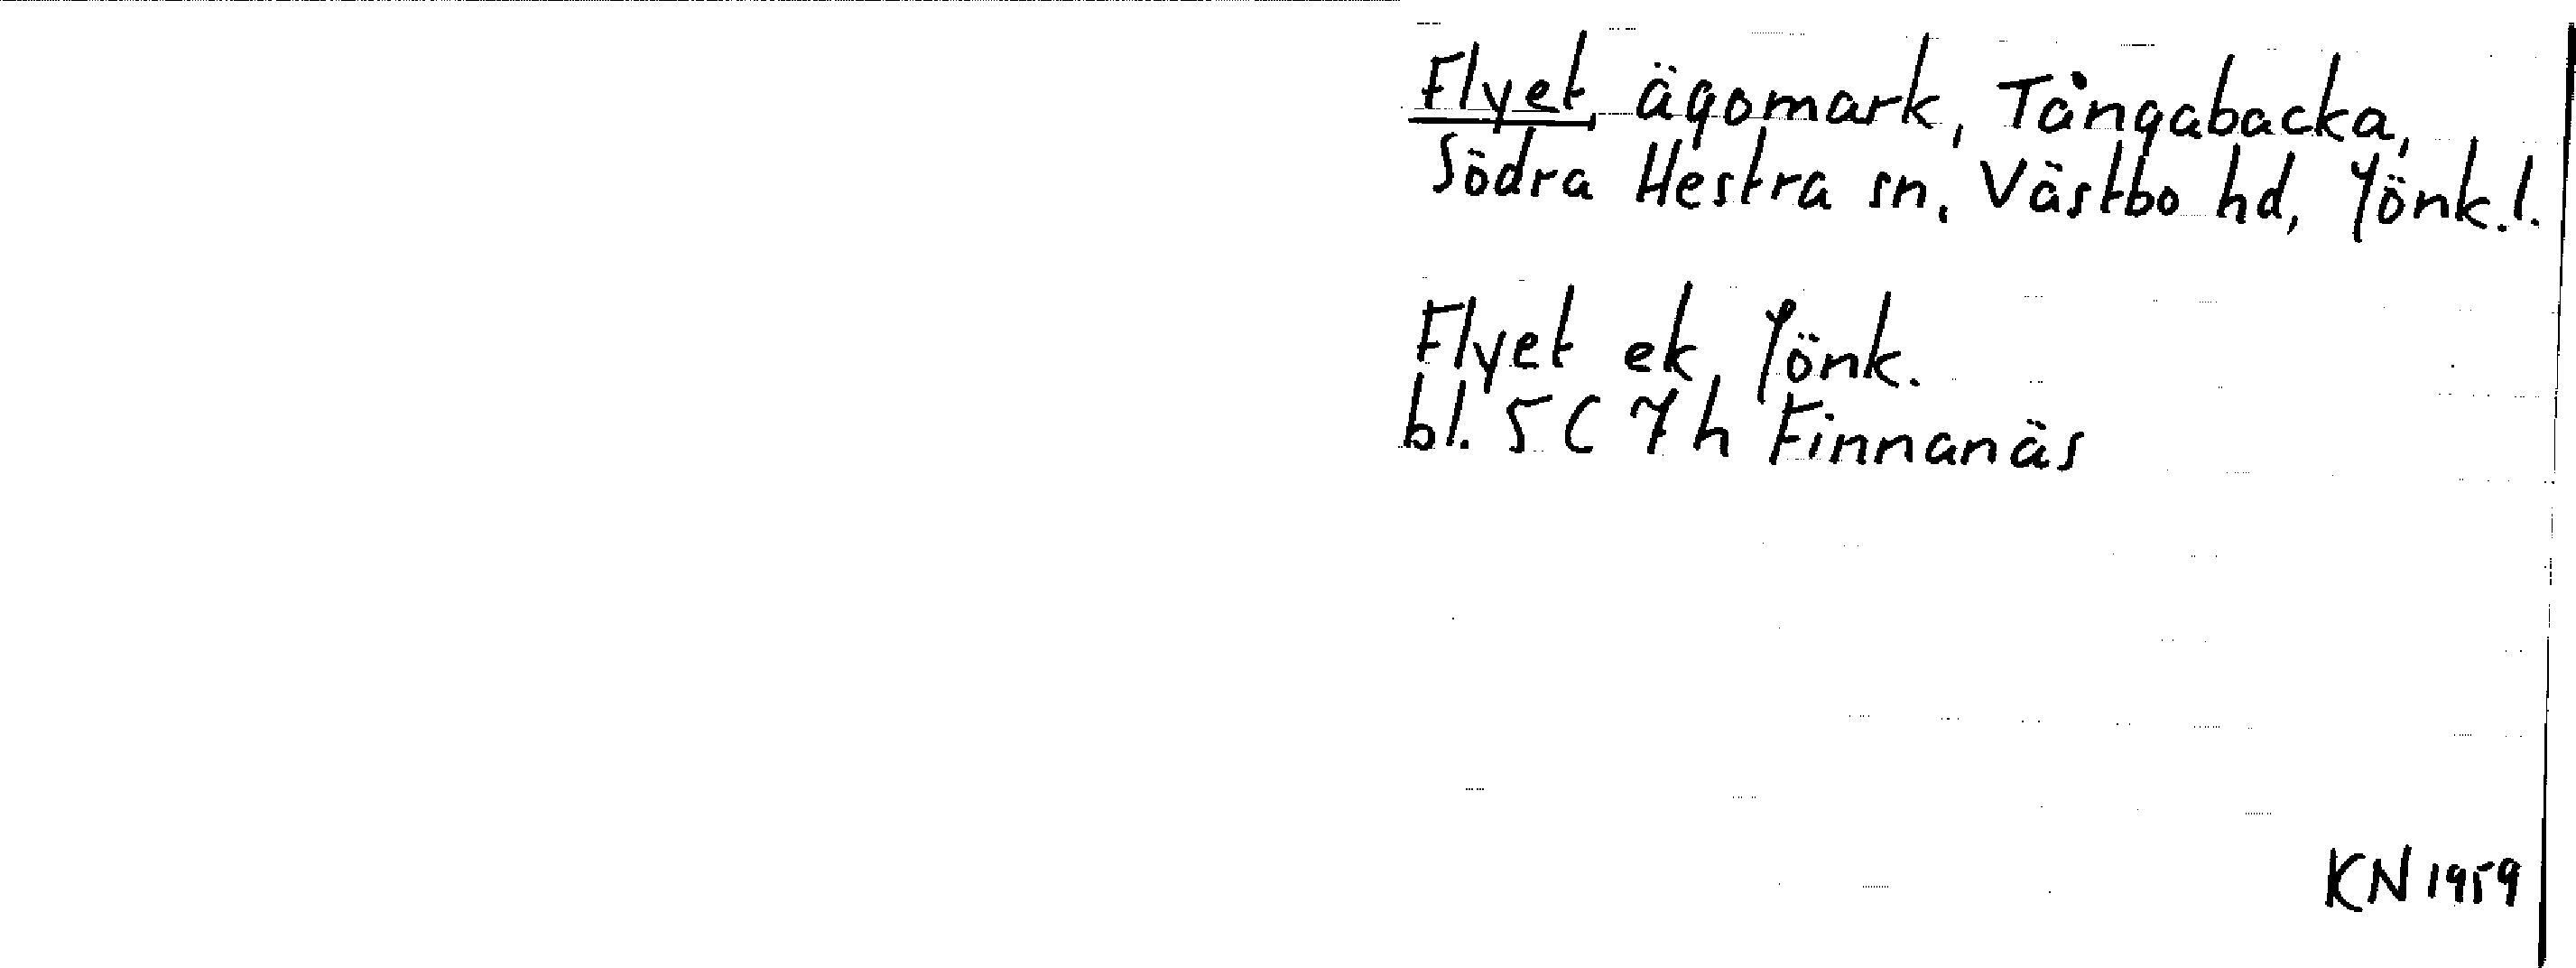 Flyet, ägomark, Tångabacka,
Södra Hestra sn, Västbo hd, Jönk.l.
Flyet ek, Jönk.
bl. 5C 7h Finnanäs
KN 1959